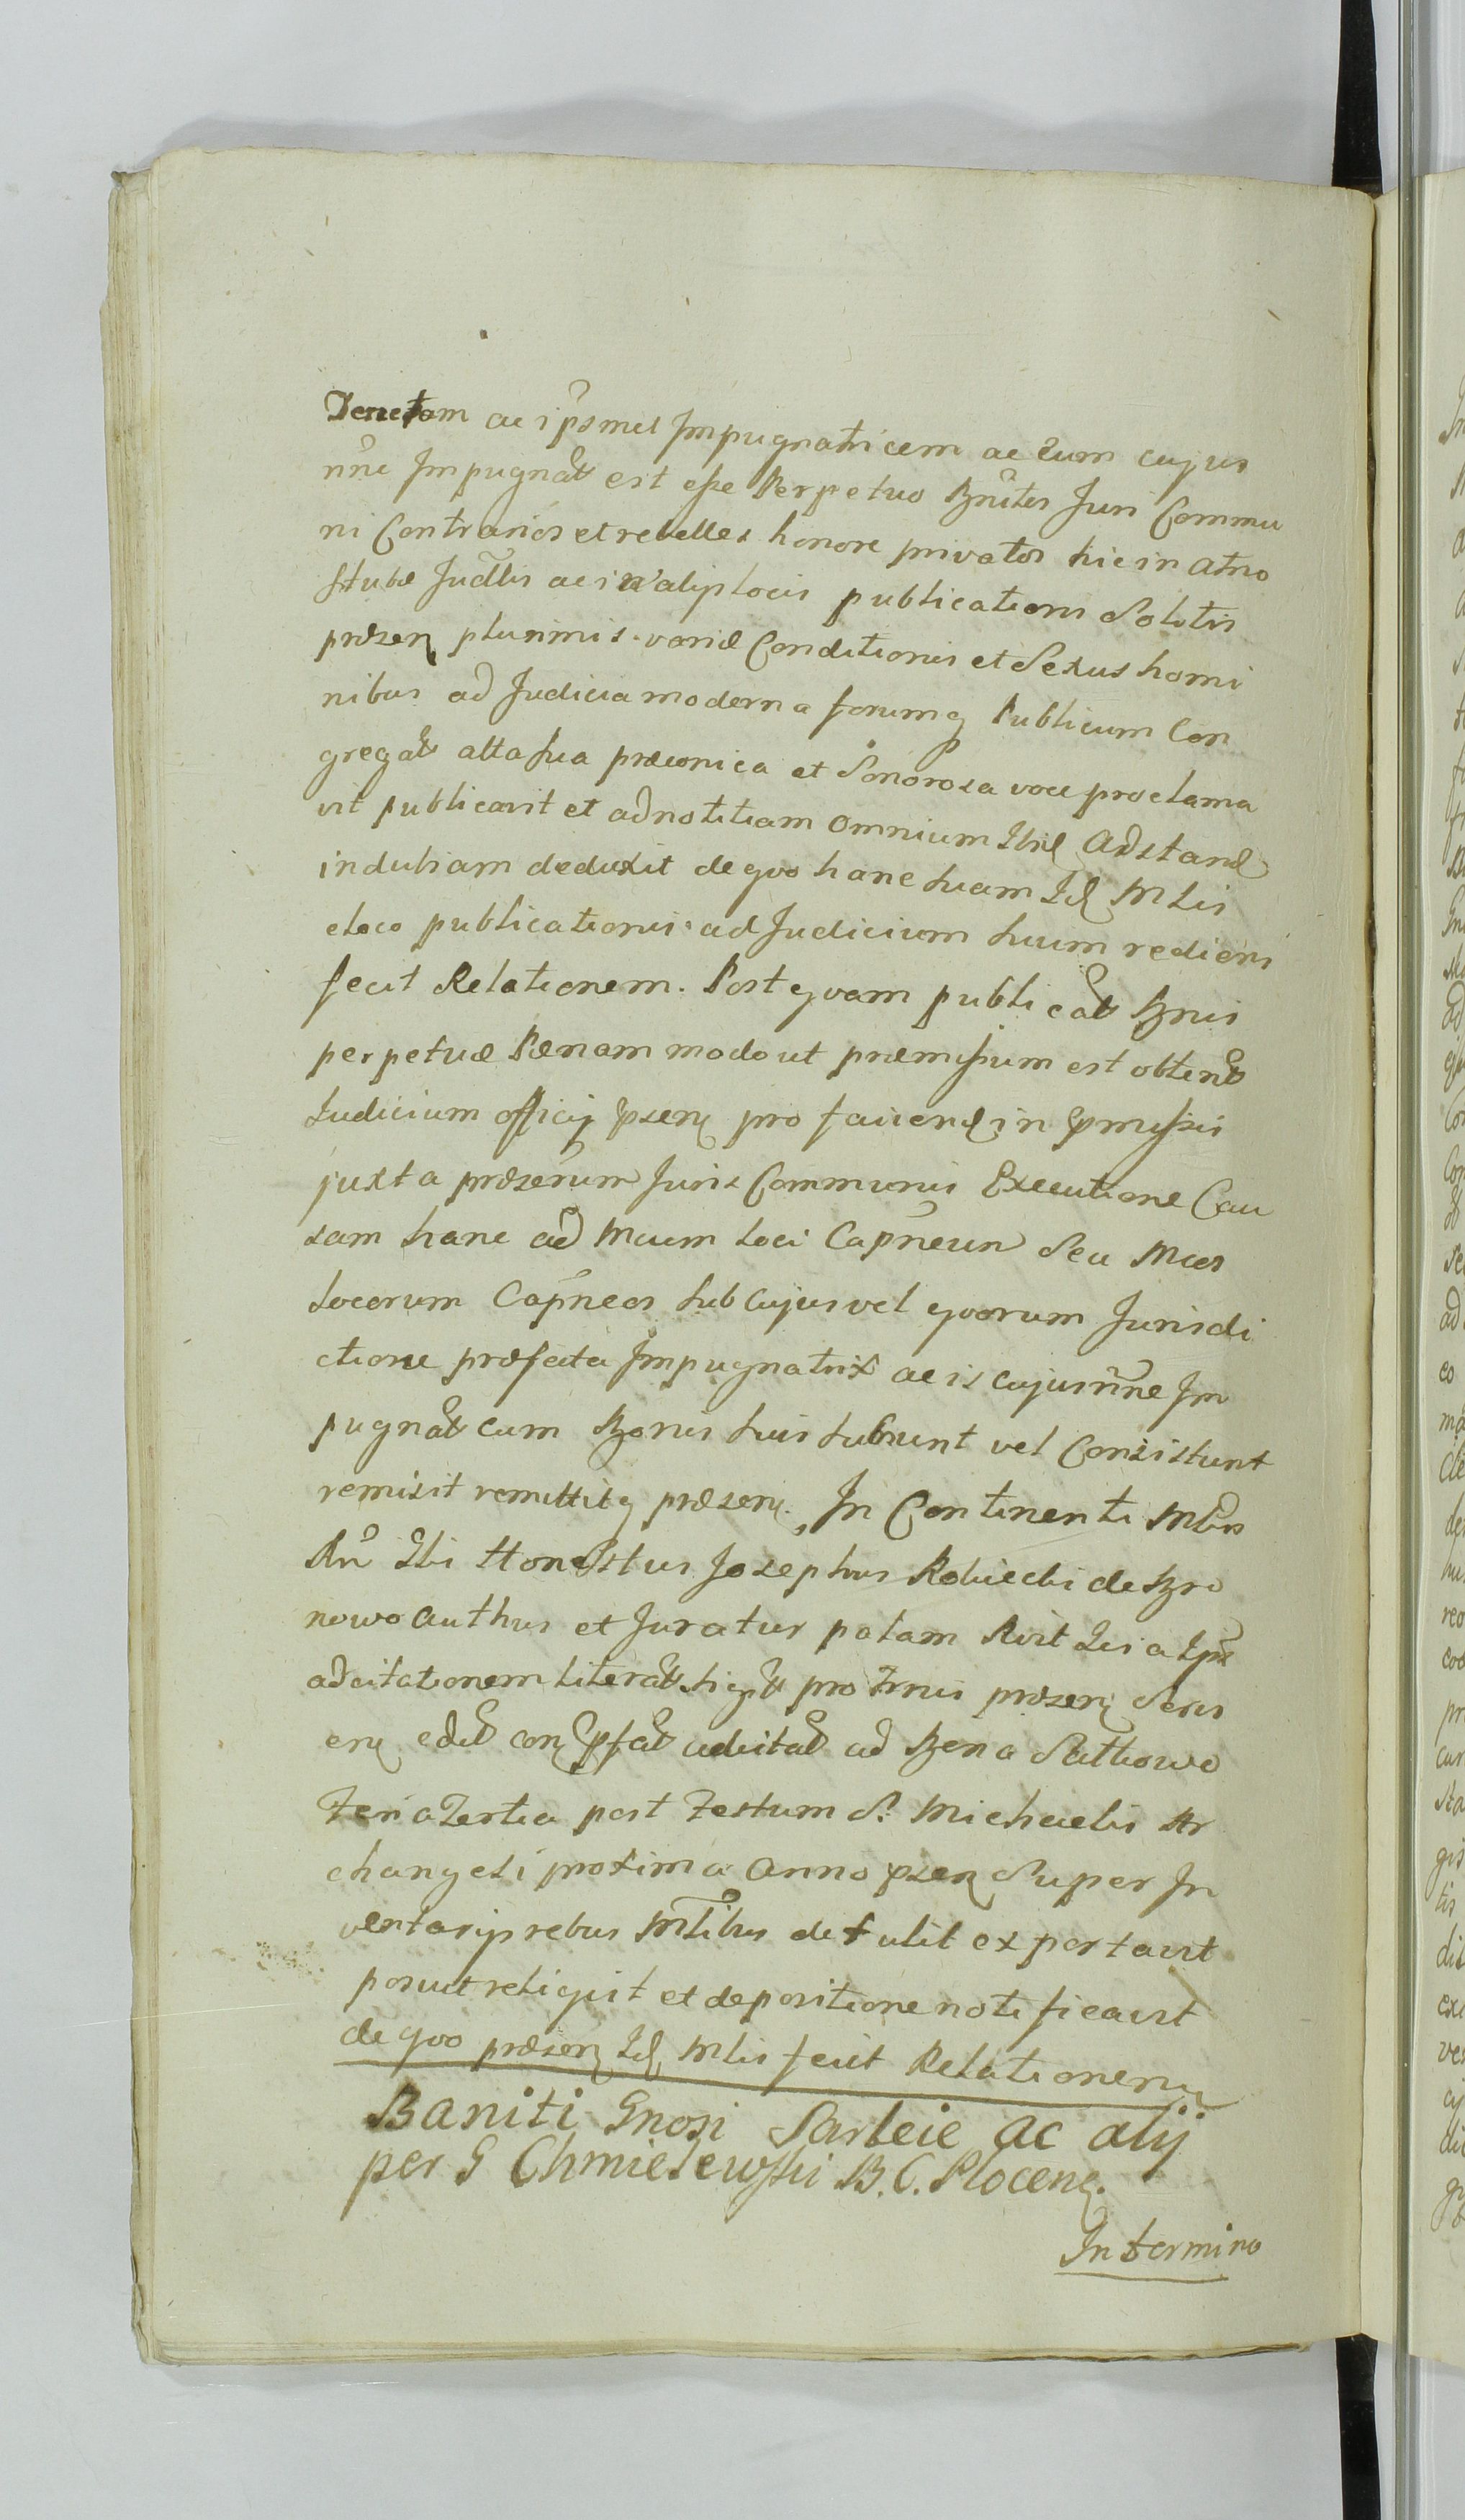 Tenetam ac ipsmet Impugnatricem ac Eum cujus
nne Impugnat est esse Perpetuo Bnitos Juri Commu
ni Contrarios et rebelles honore privatos hic in atrio
Stubæ Judlis ac in alijs locis publicationi Solitis
præsen plurimis variæ Conditionis et Sexus homi
nibus ad Judicia moderna forumq Publicum Con
gregat alta sua præconica et Sonorosa voce proclama
vit publicavit et ad notitiam omnium Ibid Adstand
indubiam deduxit de quo hanc suam Id Mlis
e loco publicationis ad Judicium suum rediens
fecit Relationem. Post quam publicat Bnis
perpetuæ Pænam modo ut præmissum est obtent
Judicium officij psen pro faciend in pmissis
juxta præsenum Juris Communis Executione Cau
sam hanc ad Mcum loci Capneun Seu Mcos
Locorum Capneos sub cujus vel quorum Jurisdi
ctione præfata Impugnatrix ac is cujus nne Im
pugnat cum Bonis suis subsunt vel Consistunt
remisit remittitq præsen. In Continenti Mlis
Rn Ibi Honestus Josephus Robiecki de Bro
nowo authus et Juratus palam Rvit Qis a Ipse
ad citationem literat sigilt pro Trnis præsen Seris
en edit con psat adcitat ad Bona Sattowo
Feria Tertia post Festum S. Michaelis Ar
changeli proxima Anno psen Super In
ventarijs rebus Mlibus detulit exportavit
posuit reliquit et de positione notificavit
de quo præsen Id Mlis fecit Relationem
Baniti Gnosi Sarbeie ac alij
per G Chmielewski B. C. Plocens.
In termino